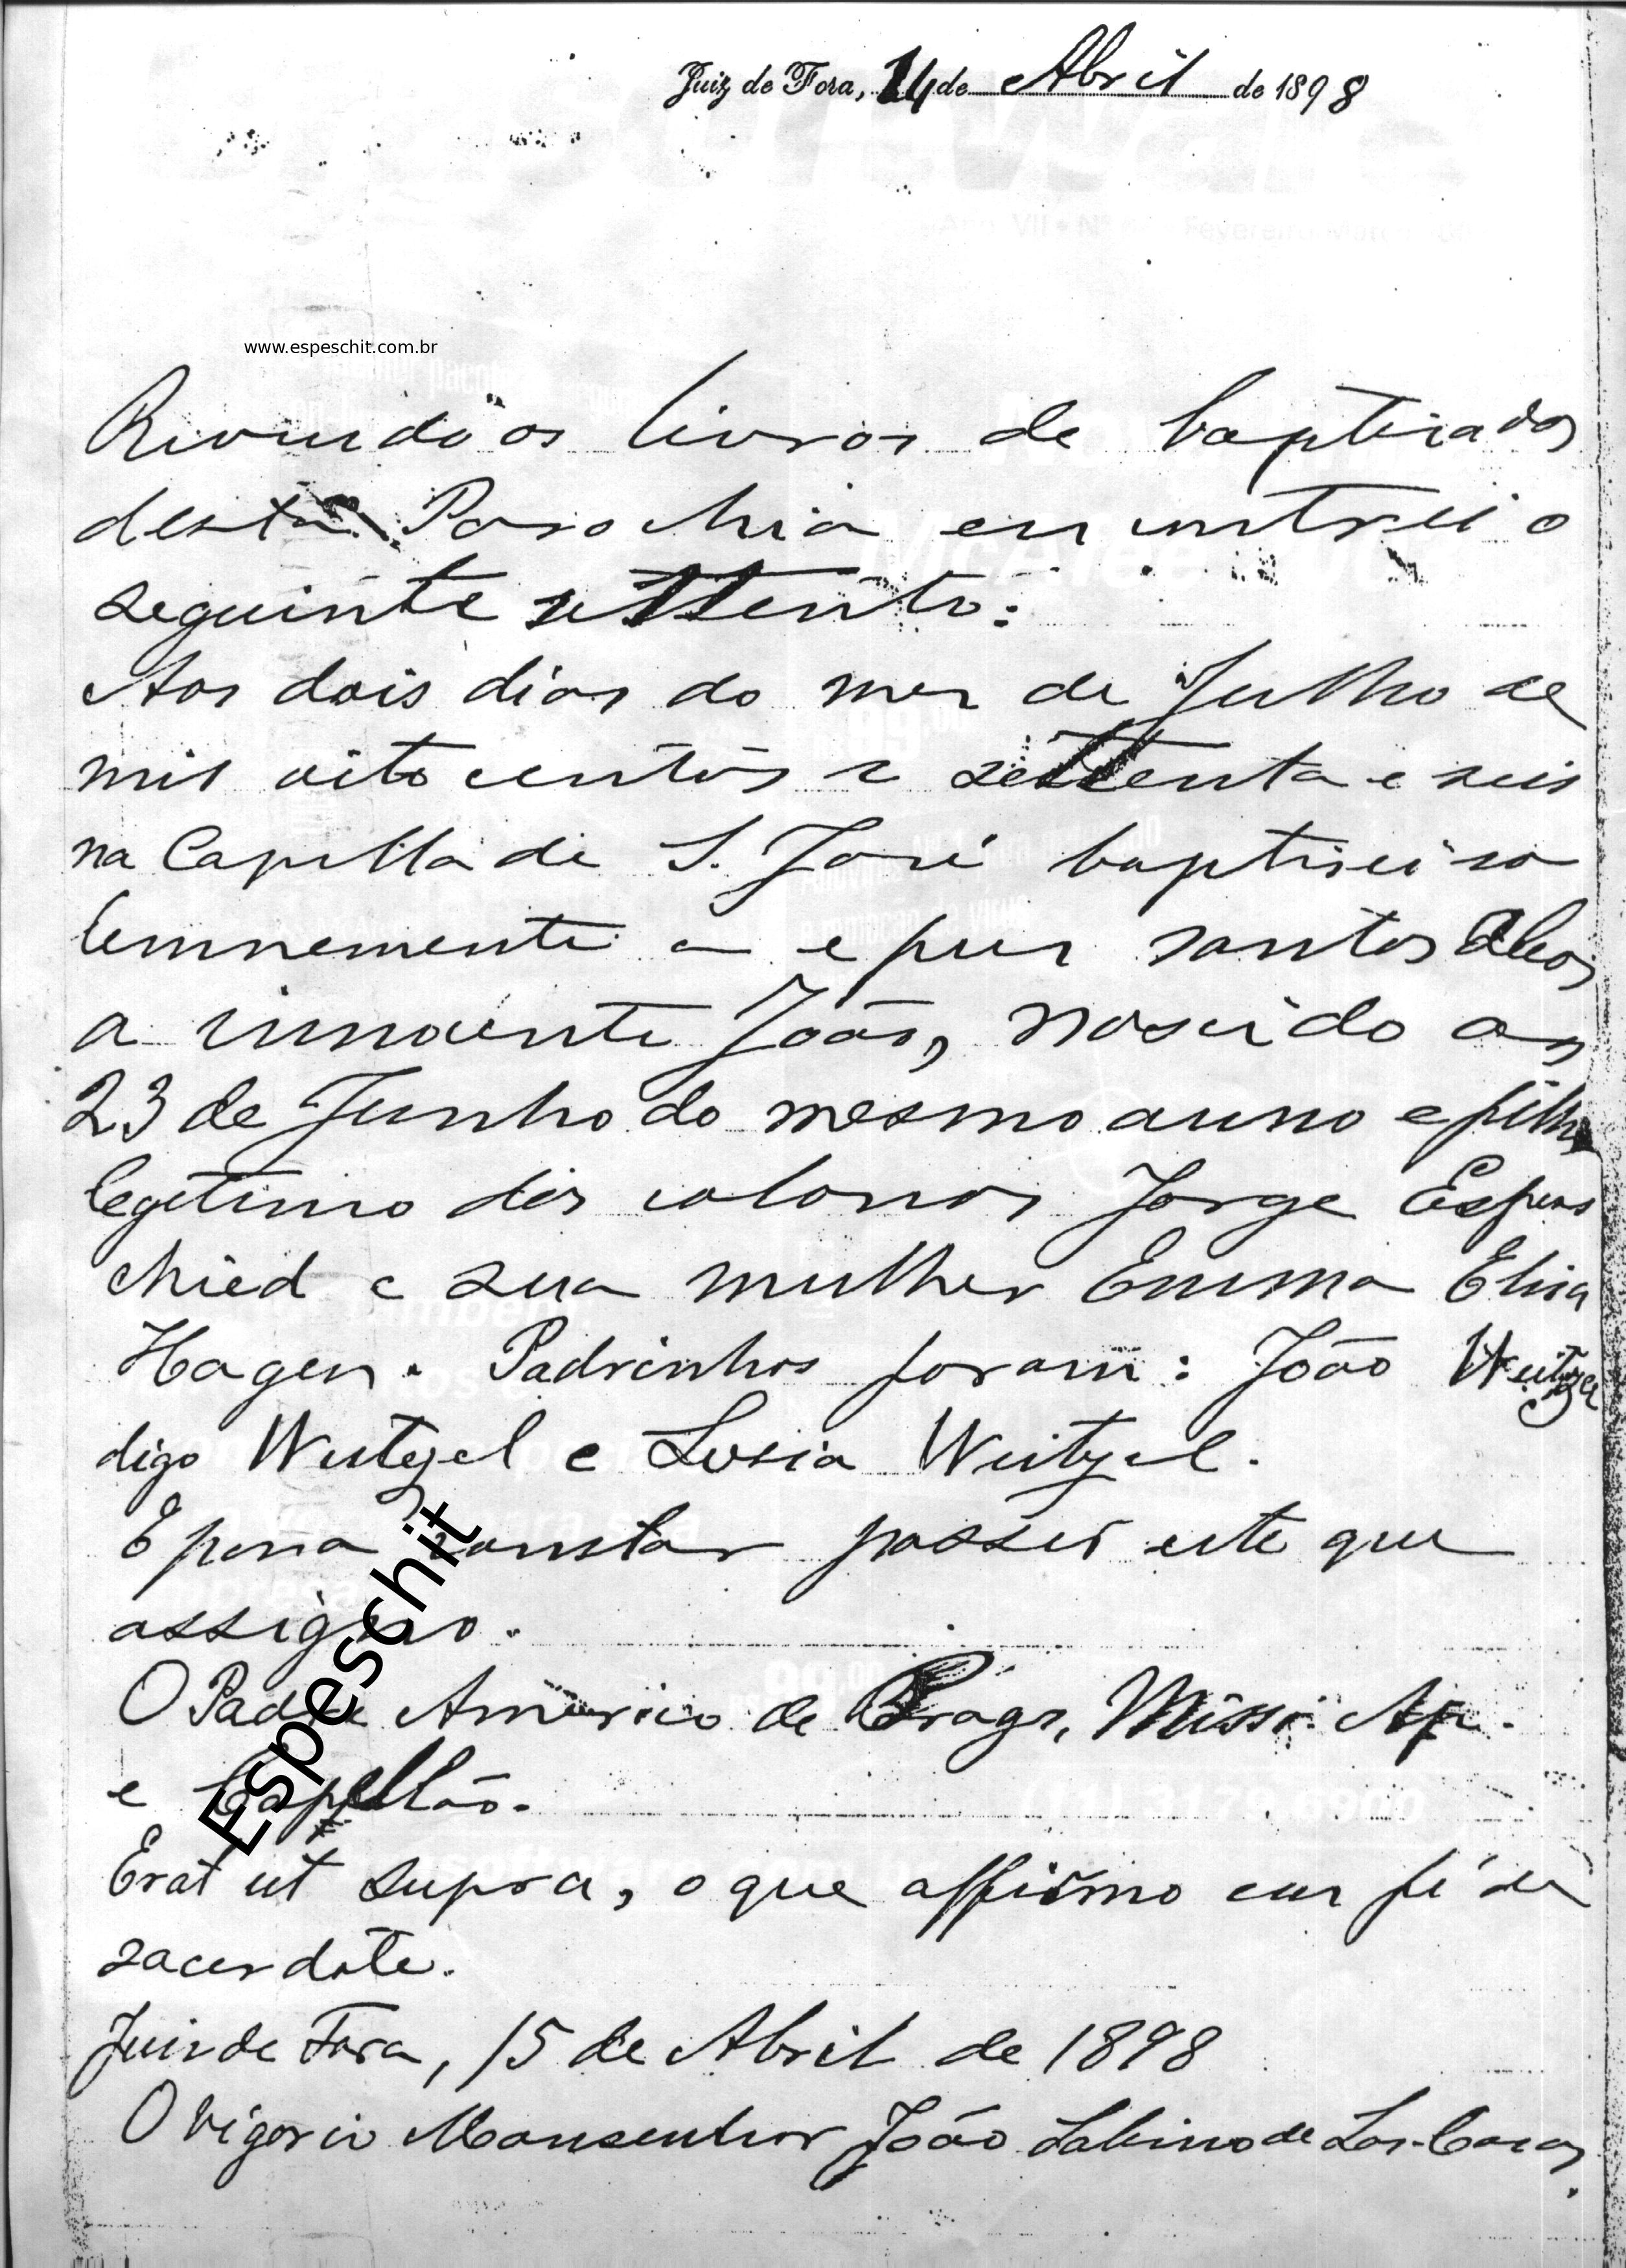 Juiz de Fora, 14 de Abril de 1898
www.espeschit.com.br
Revendo os livros de baptizados
desta Parochia encontrei o
seguinte
Aos dois dias do mez de Julho de
mil oito centos e settenta e seis
na Capella de S. José baptisei so
lemnemente a e puz santos Oleos
a innocente João, nascido aos
23 de Junho do mesmo anno e filho
legitimo dos colonos Jorge Espers
chied e sua mulher Emma Elisa
Hagen. Padrinhos foram: João Weitzel
digo Weitzel e Lusia Weitzel.
E para constar passei este que
assigno.
O Padre Americo de Braga, Miss. Ap.
e Capellão.
Erat ut supra, o que affirmo em fé de
sacerdote.
Juiz de Fora, 15 de Abril de 1898
O Vigario Monsenhor João Sabino de Las-Casas.
Espeschit